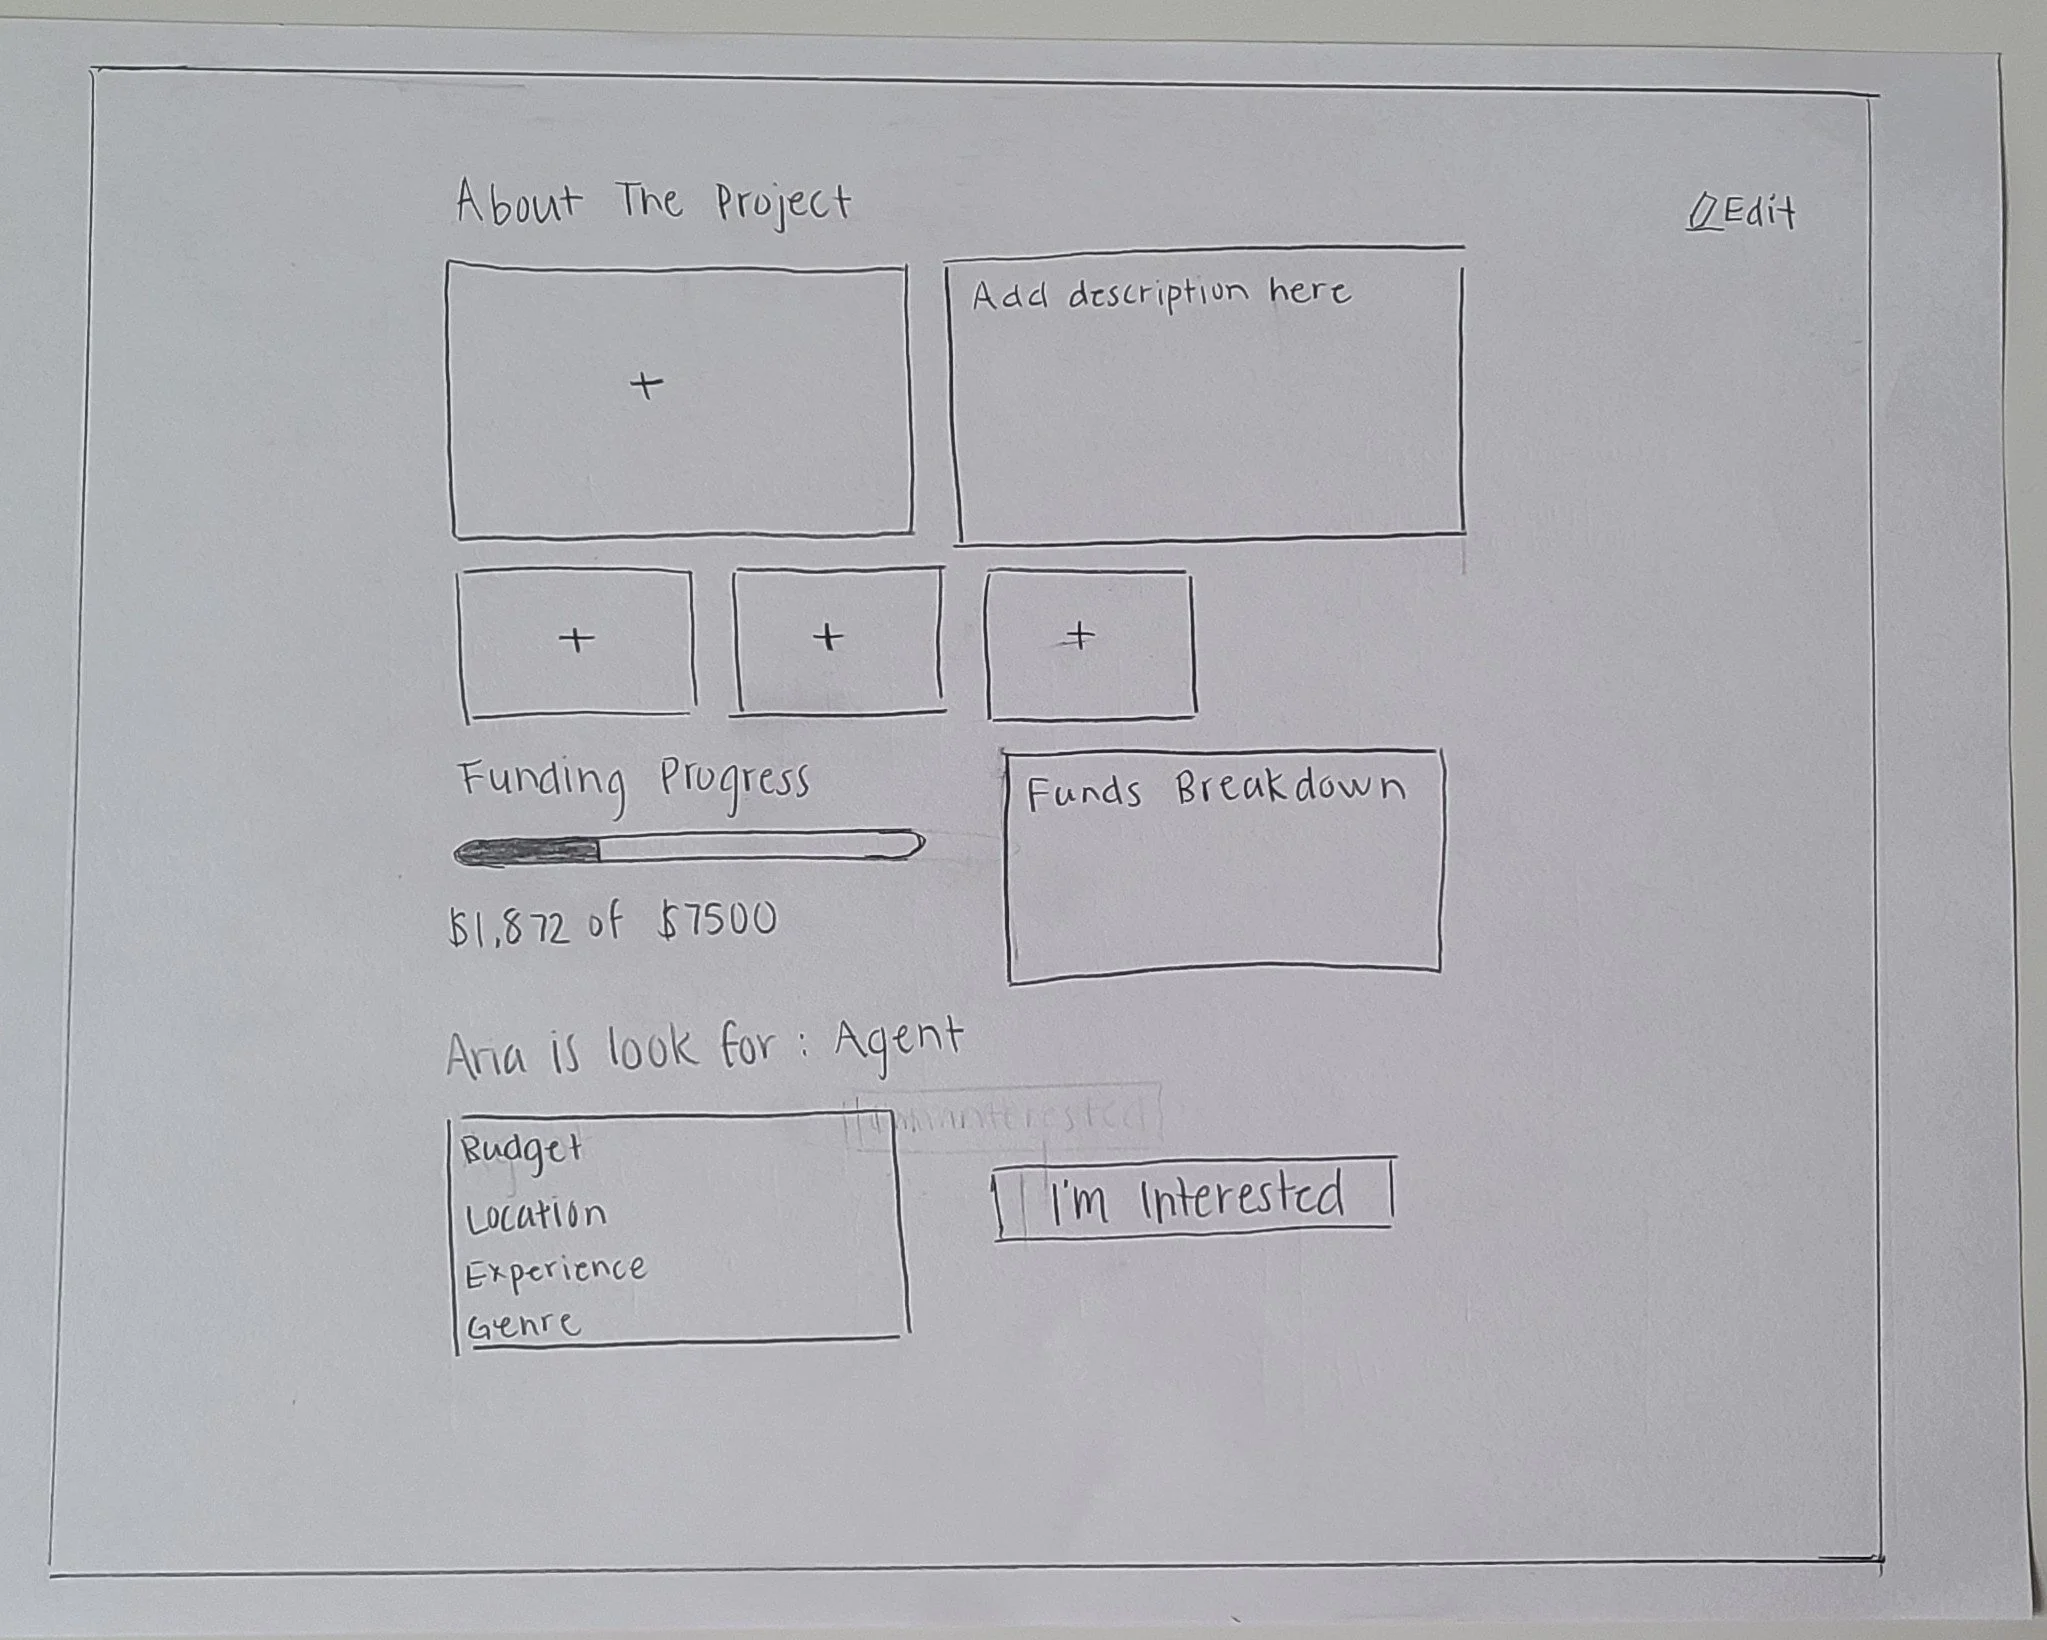 About The Project
Edit
+
Add description here
+ + +
Funding Progress
Funds Breakdown
$1,872 of $7500
Aria is look for : Agent
Budget
Location
Experience
Genre
I'm Interested